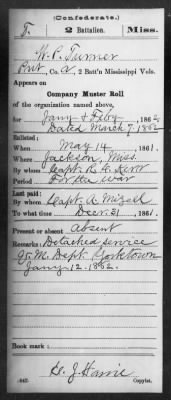 (Confederate.)
T. 2 Battalion. Miss.
W. P. Turner
Pvt, Co. A, 2 Batt'n Mississippi Vols.
Appears on
Company Muster Roll
of the organization named above,
for Jany & Feby, 1862.
Dated March 7, 1862
Enlisted:
When May 14, 1861.
Where Jackson, Miss.
By whom Capt. R. C. Kerr
Period For the war
Last paid:
By whom Capt. A. Mizell
To what time Decr. 31, 1861.
Present or absent Absent
Remarks: Detached service
Qr. M. Dept. Yorktown
Jany. 12. 1862.
Book mark:
(642)
Copyist.